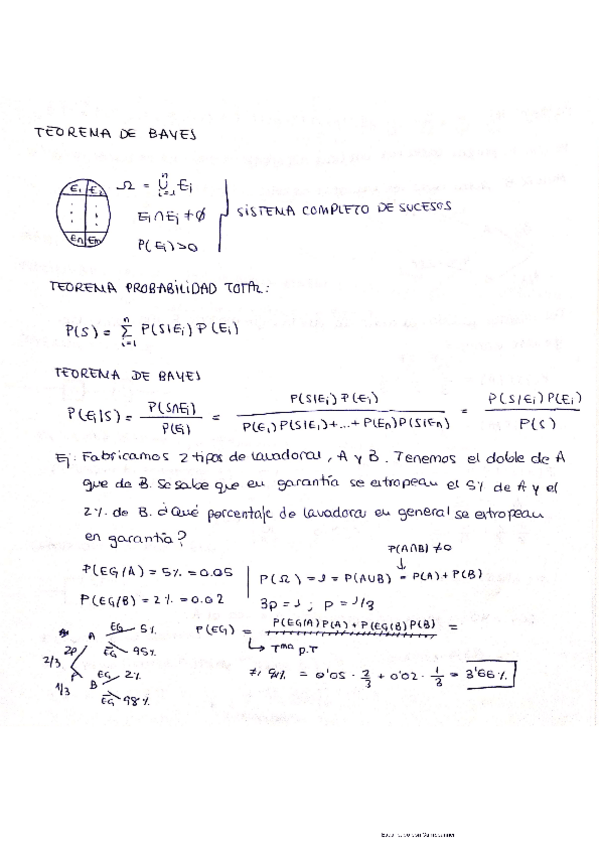 TEOREMA DE BAYES
E1 E2 Ω = ⋃ⁿᵢ₌₁ Ei
Ei ∩ Ej ≠ ∅ SISTEMA COMPLETO DE SUCESOS
En Em P(Ei) > 0
TEOREMA PROBABILIDAD TOTAL:
P(S) = Σⁿᵢ₌₁ P(S|Ei) P(Ei)
TEOREMA DE BAYES
P(Ei|S) = P(S∩Ei) / P(Ei) = P(S|Ei) P(Ei) / P(E1)P(S|E1)+...+P(En)P(S|En) = P(S/Ei) P(Ei) / P(S)
Ej: Fabricamos 2 tipos de lavadoras, A y B. Tenemos el doble de A
que de B. Se sabe que en garantía se estropean el 5% de A y el
2% de B. ¿Qué porcentaje de lavadora en general se estropean
en garantía?
P(A∩B) ≠ 0
P(EG/A) = 5% = 0.05 P(Ω) = 1 = P(A∪B) = P(A) + P(B)
P(EG/B) = 2% = 0.02 3p = 1 ; p = 1/3
A EG 5% P(EG) = P(EG/A) P(A) + P(EG/B) P(B) =
2p EG 95% Tma p.T
2/3 EG 2% = 0'05 · 2/3 + 0'02 · 1/3 = 3'66%
1/3 P B EG 98%